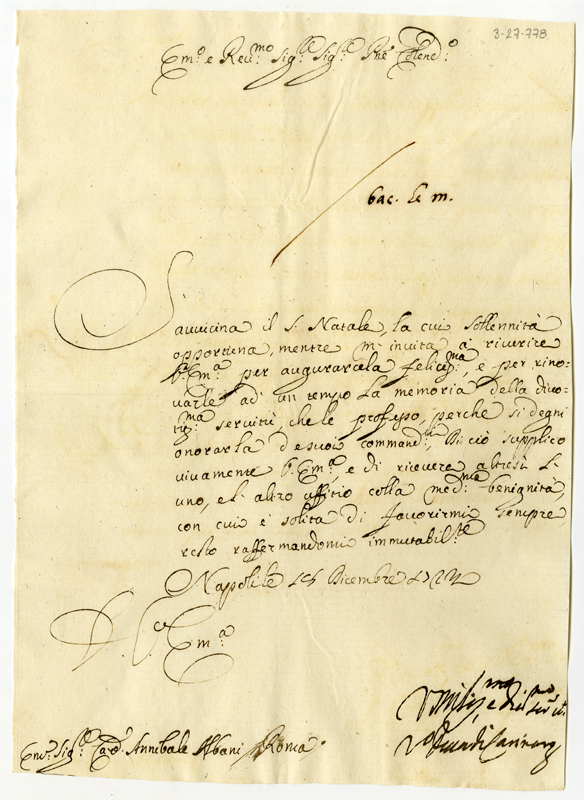 3-27-778
Em.º e Reu.mo Sig.re Sig.re Pne Colend.º
bac. le m.
S'auuicina il S. Natale, la cui sollennità
opportuna, mentre m'inuita à riuerire
V. Em.ª per augurarcela felicis.ma, e per rino-
uarle ad' un tempo la memoria della diuo-
tis.ma seruitù, che le professo, perche si degni
onorarla de suoi command.ti, Di ciò supplico
viuamente V. Em.ª, e di riceuere altresì l'
uno, e l'altro uffitio colla med.ma benignità,
con cui è solita di fauorirmi sempre,
resto raffermandomi immutabil.te
Napoli le 15 Dicembre
D. V. Em.ª
Vmilis.ma, e
Em.º Sig.re Card. Annibale Albani Roma.